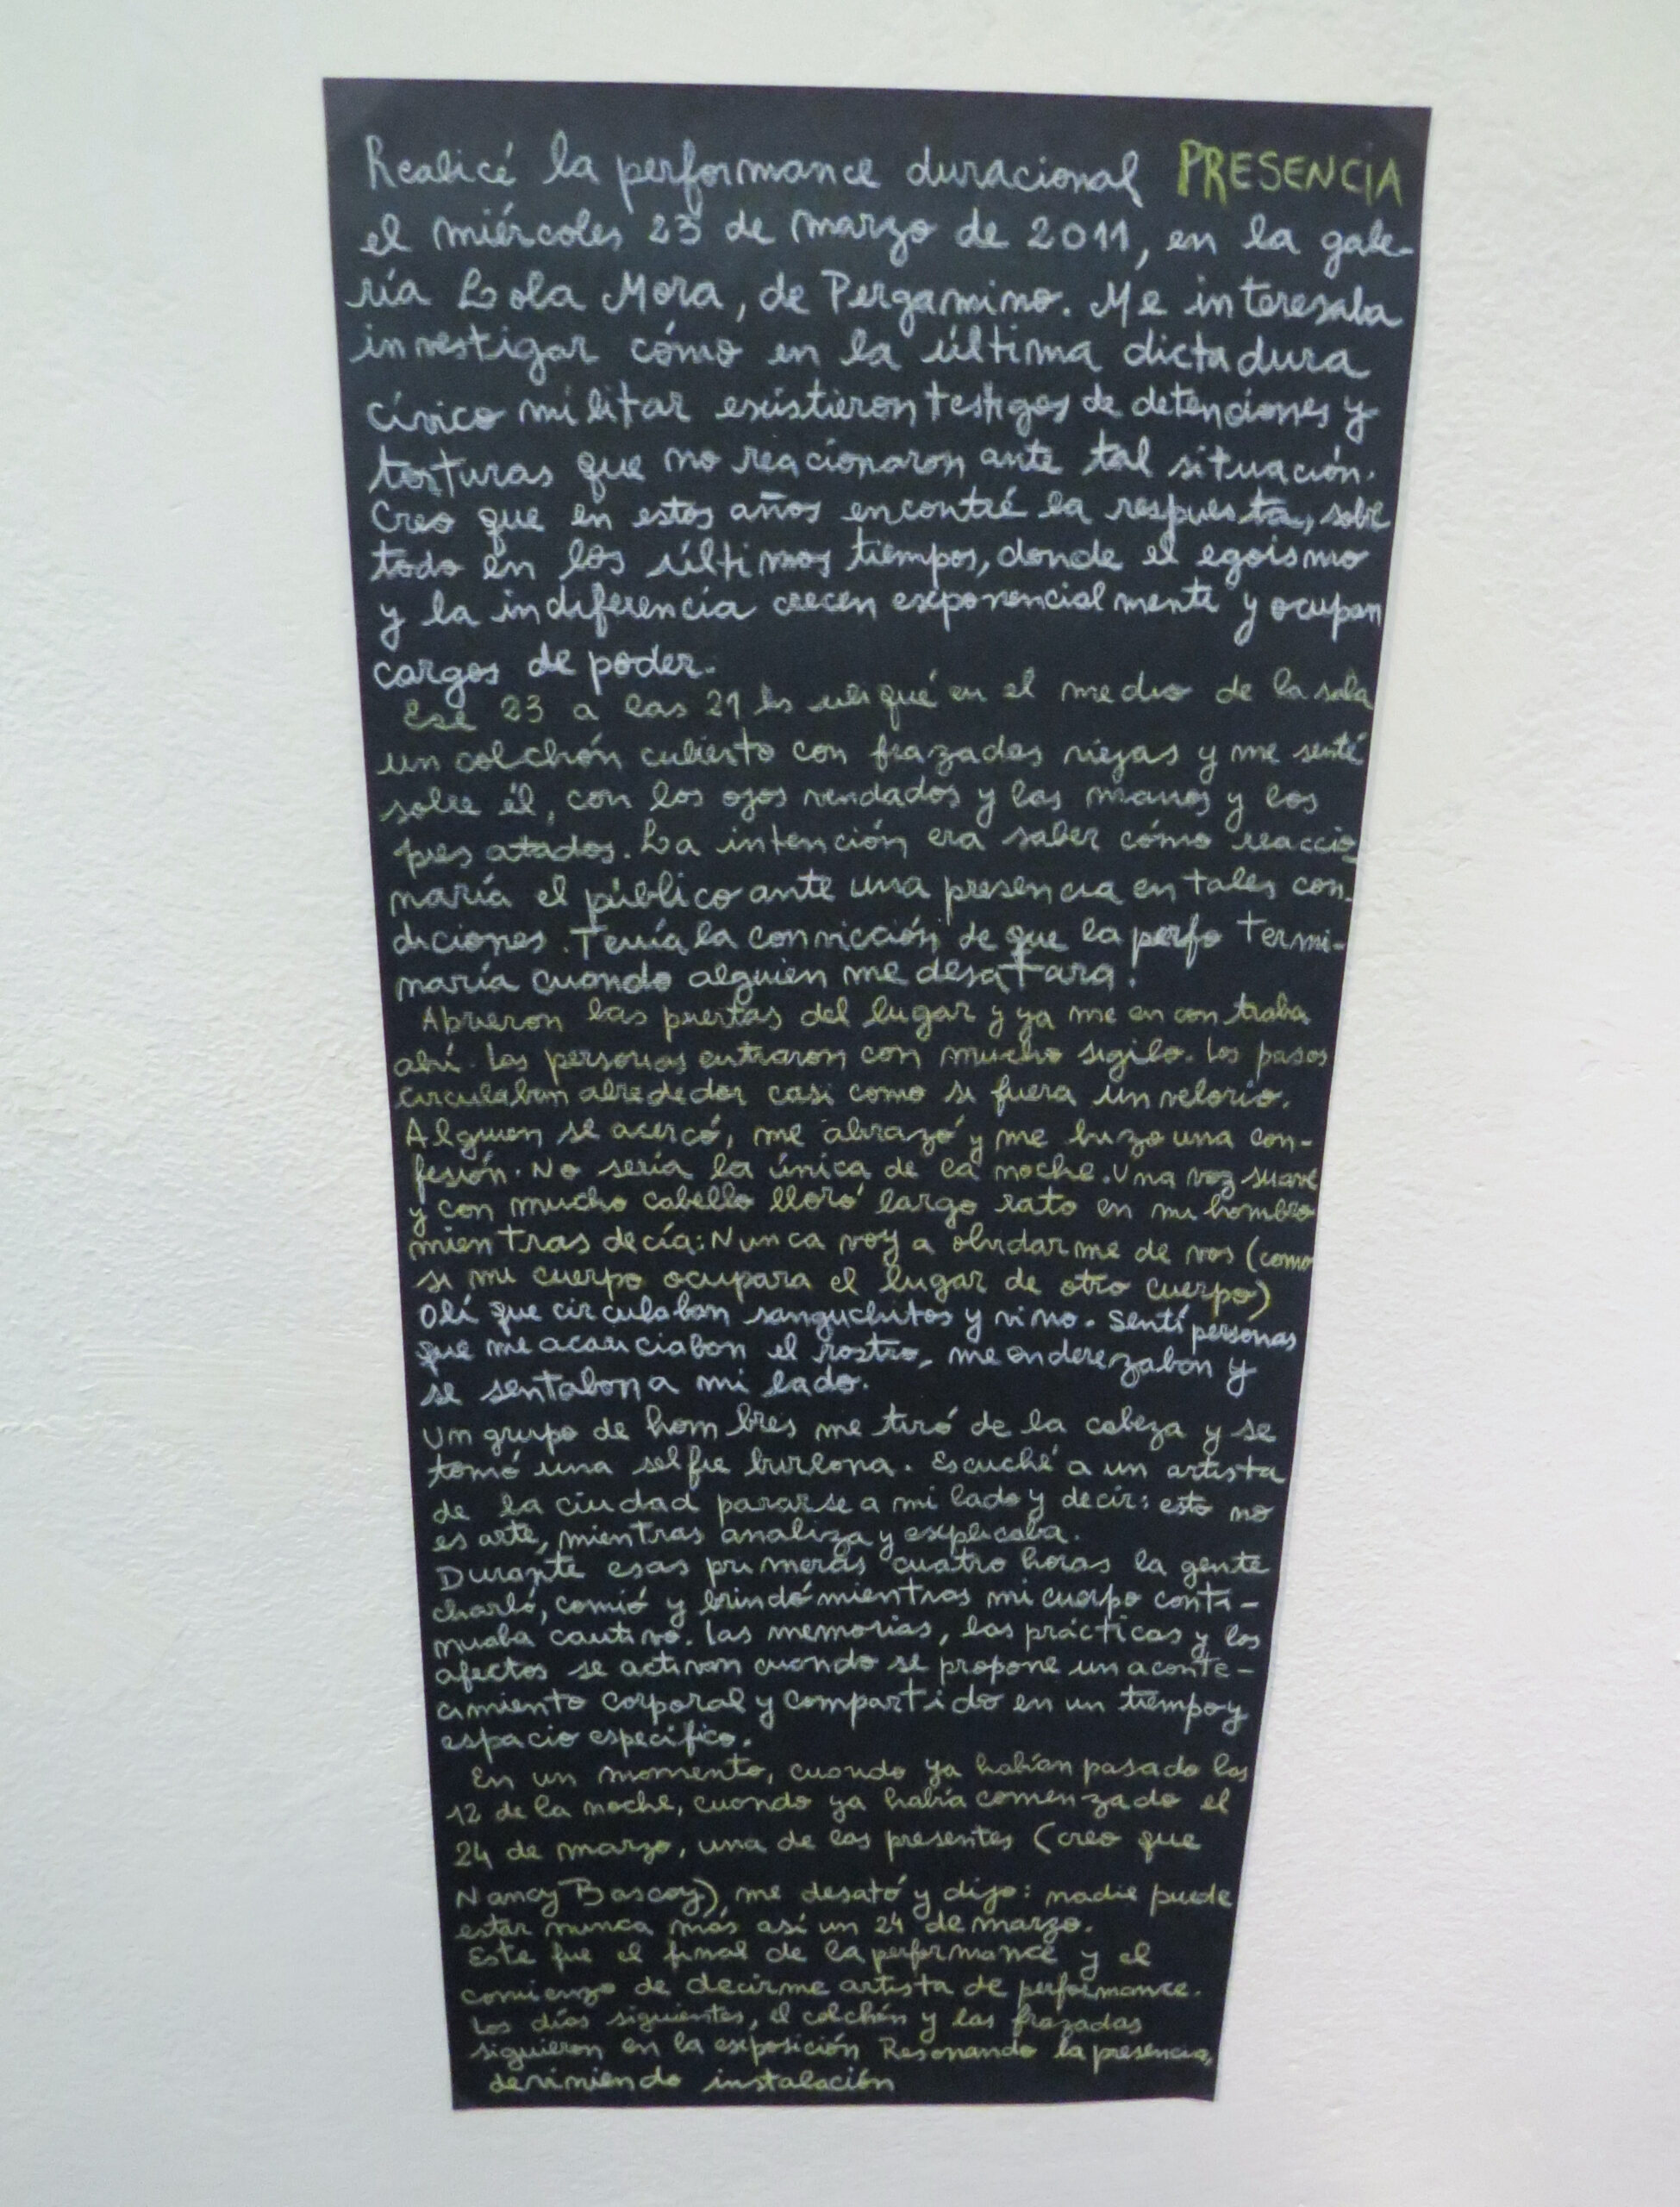 Realicé la performance duracional PRESENCIA
el miércoles 23 de marzo de 2011, en la gale-
ría Lola Mora, de Pergamino. Me interesaba
investigar cómo en la última dictadura
cívico militar existieron testigos de detenciones y
torturas que no reacionaron ante tal situación.
Creo que en estos años encontré la respuesta, sobre
todo en los últimos tiempos, donde el egoismo
y la indiferencia crecen exponencialmente y ocupan
cargos de poder.
Ese 23 a las 21 hs ubiqué en el medio de la sala
un colchón cubierto con frazadas viejas y me senté
sobre él, con los ojos vendados y las manos y los
pies atados. La intención era saber cómo reaccio
naría el público ante una presencia en tales con-
diciones. Tenía la convicción de que la perfo termi-
naría cuando alguien me desatara.
Abrieron las puertas del lugar y ya me encontraba
ahí. Las personas entraron con mucho sigilo. Los pasos
circulaban alrededor casi como si fuera un velorio.
Alguien se acercó, me abrazó y me hizo una con-
fesión. No sería la única de la noche. Una voz suave
y con mucho cabello lloró largo rato en mi hombro
mientras decía: Nunca voy a olvidarme de vos (como
si mi cuerpo ocupara el lugar de otro cuerpo)
Olí que circulaban sanguchitos y vino. Sentí personas
que me acariciaban el rostro, me enderezaban y
se sentaban a mi lado.
Un grupo de hombres me tiró de la cabeza y se
tomó una selfie burlona. Escuché a un artista
de la ciudad pararse a mi lado y decir: esto no
es arte, mientras analiza y explicaba.
Durante esas primeras cuatro horas la gente
charló, comió y brindó mientras mi cuerpo conti-
nuaba cautivo. Las memorias, las prácticas y los
afectos se activan cuando se propone un aconte-
cimiento corporal y compartido en un tiempo y
espacio específico.
En un momento, cuando ya habían pasado las
12 de la noche, cuando ya había comenzado el
24 de marzo, una de las presentes (creo que
Nancy Bascoy) me desató y dijo: nadie puede
estar nunca más así un 24 de marzo.
Este fue el final de la performance y el
comienzo de decirme artista de performance.
Los días siguientes, el colchón y las frazadas
siguieron en la exposición Resonando la presencia,
deviniendo instalación